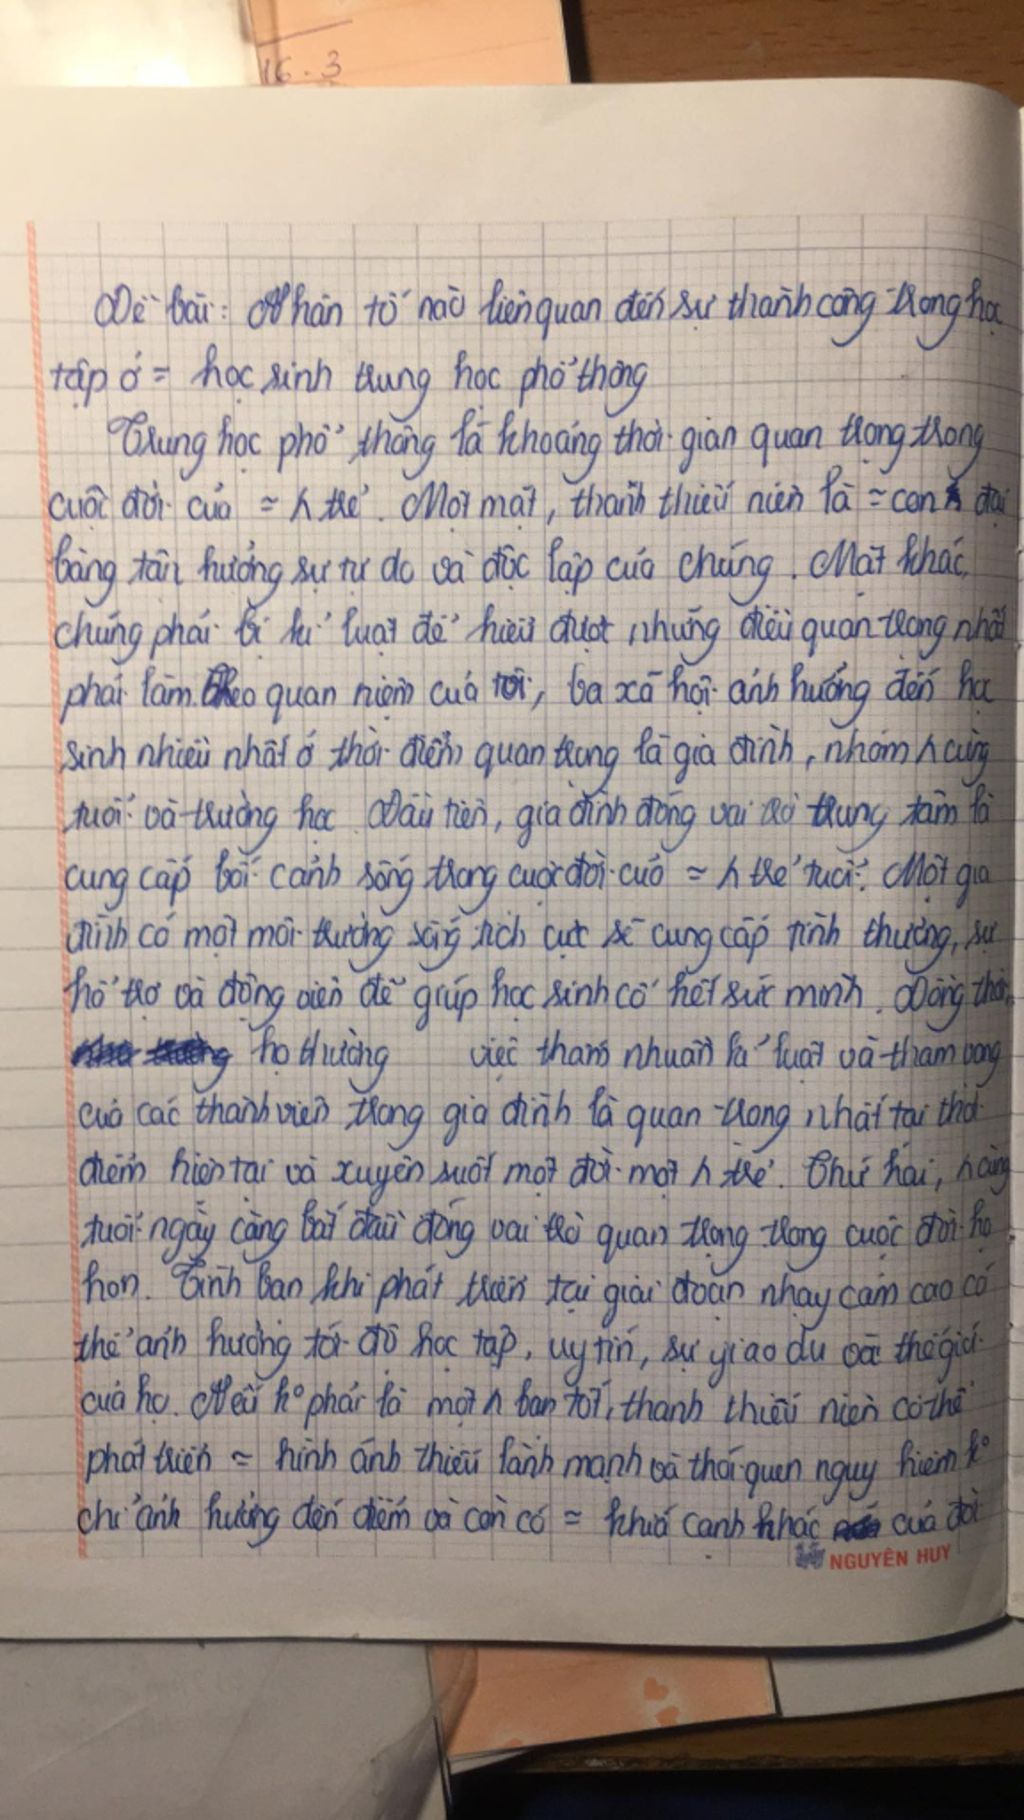 16.3
Đề bài: Nhân tố nào liên quan đến sự thành công trong học
tập ở = học sinh trung học phổ thông
Trung học phổ thông là khoảng thời gian quan trọng trong
cuộc đời của = h trẻ. Một mặt, thanh thiếu niên là = con đại
bàng tận hưởng sự tự do và độc lập của chúng. Mặt khác,
chúng phải bị kỉ luật để hiểu được những điều quan trọng nhất
phải làm. Theo quan niệm của tôi, ba xã hội ảnh hưởng đến học
sinh nhiều nhất ở thời điểm quan trọng là gia đình, nhóm h cùng
tuổi và trường học. Đầu tiên, gia đình đóng vai trò trung tâm là
cung cấp bối cảnh sống trong cuộc đời của = h trẻ tuổi. Một gia
đình có một môi trường sống tích cực sẽ cung cấp tình thương, sự
hỗ trợ và động viên để giúp học sinh cố hết sức mình. Đồng thời,
họ thường việc thấm nhuần kỉ luật và tham vọng
của các thành viên trong gia đình là quan trọng nhất tại thời
điểm hiện tại và xuyên suốt một đời một h trẻ. Thứ hai, h cùng
tuổi ngày càng bắt đầu đóng vai trò quan trọng trong cuộc đời họ
hơn. Tình bạn khi phát triển tại giai đoạn nhạy cảm cao có
thể ảnh hưởng tới độ học tập, uy tín, sự giao du và thế giới
của họ. Nếu kº phải là một h bạn tốt, thanh thiếu niên có thể
phát triển = hình ảnh thiếu lành mạnh và thói quen nguy hiểm kº
chỉ ảnh hưởng đến điểm và còn có = khuá cạnh khác của đời
NGUYÊN HUY